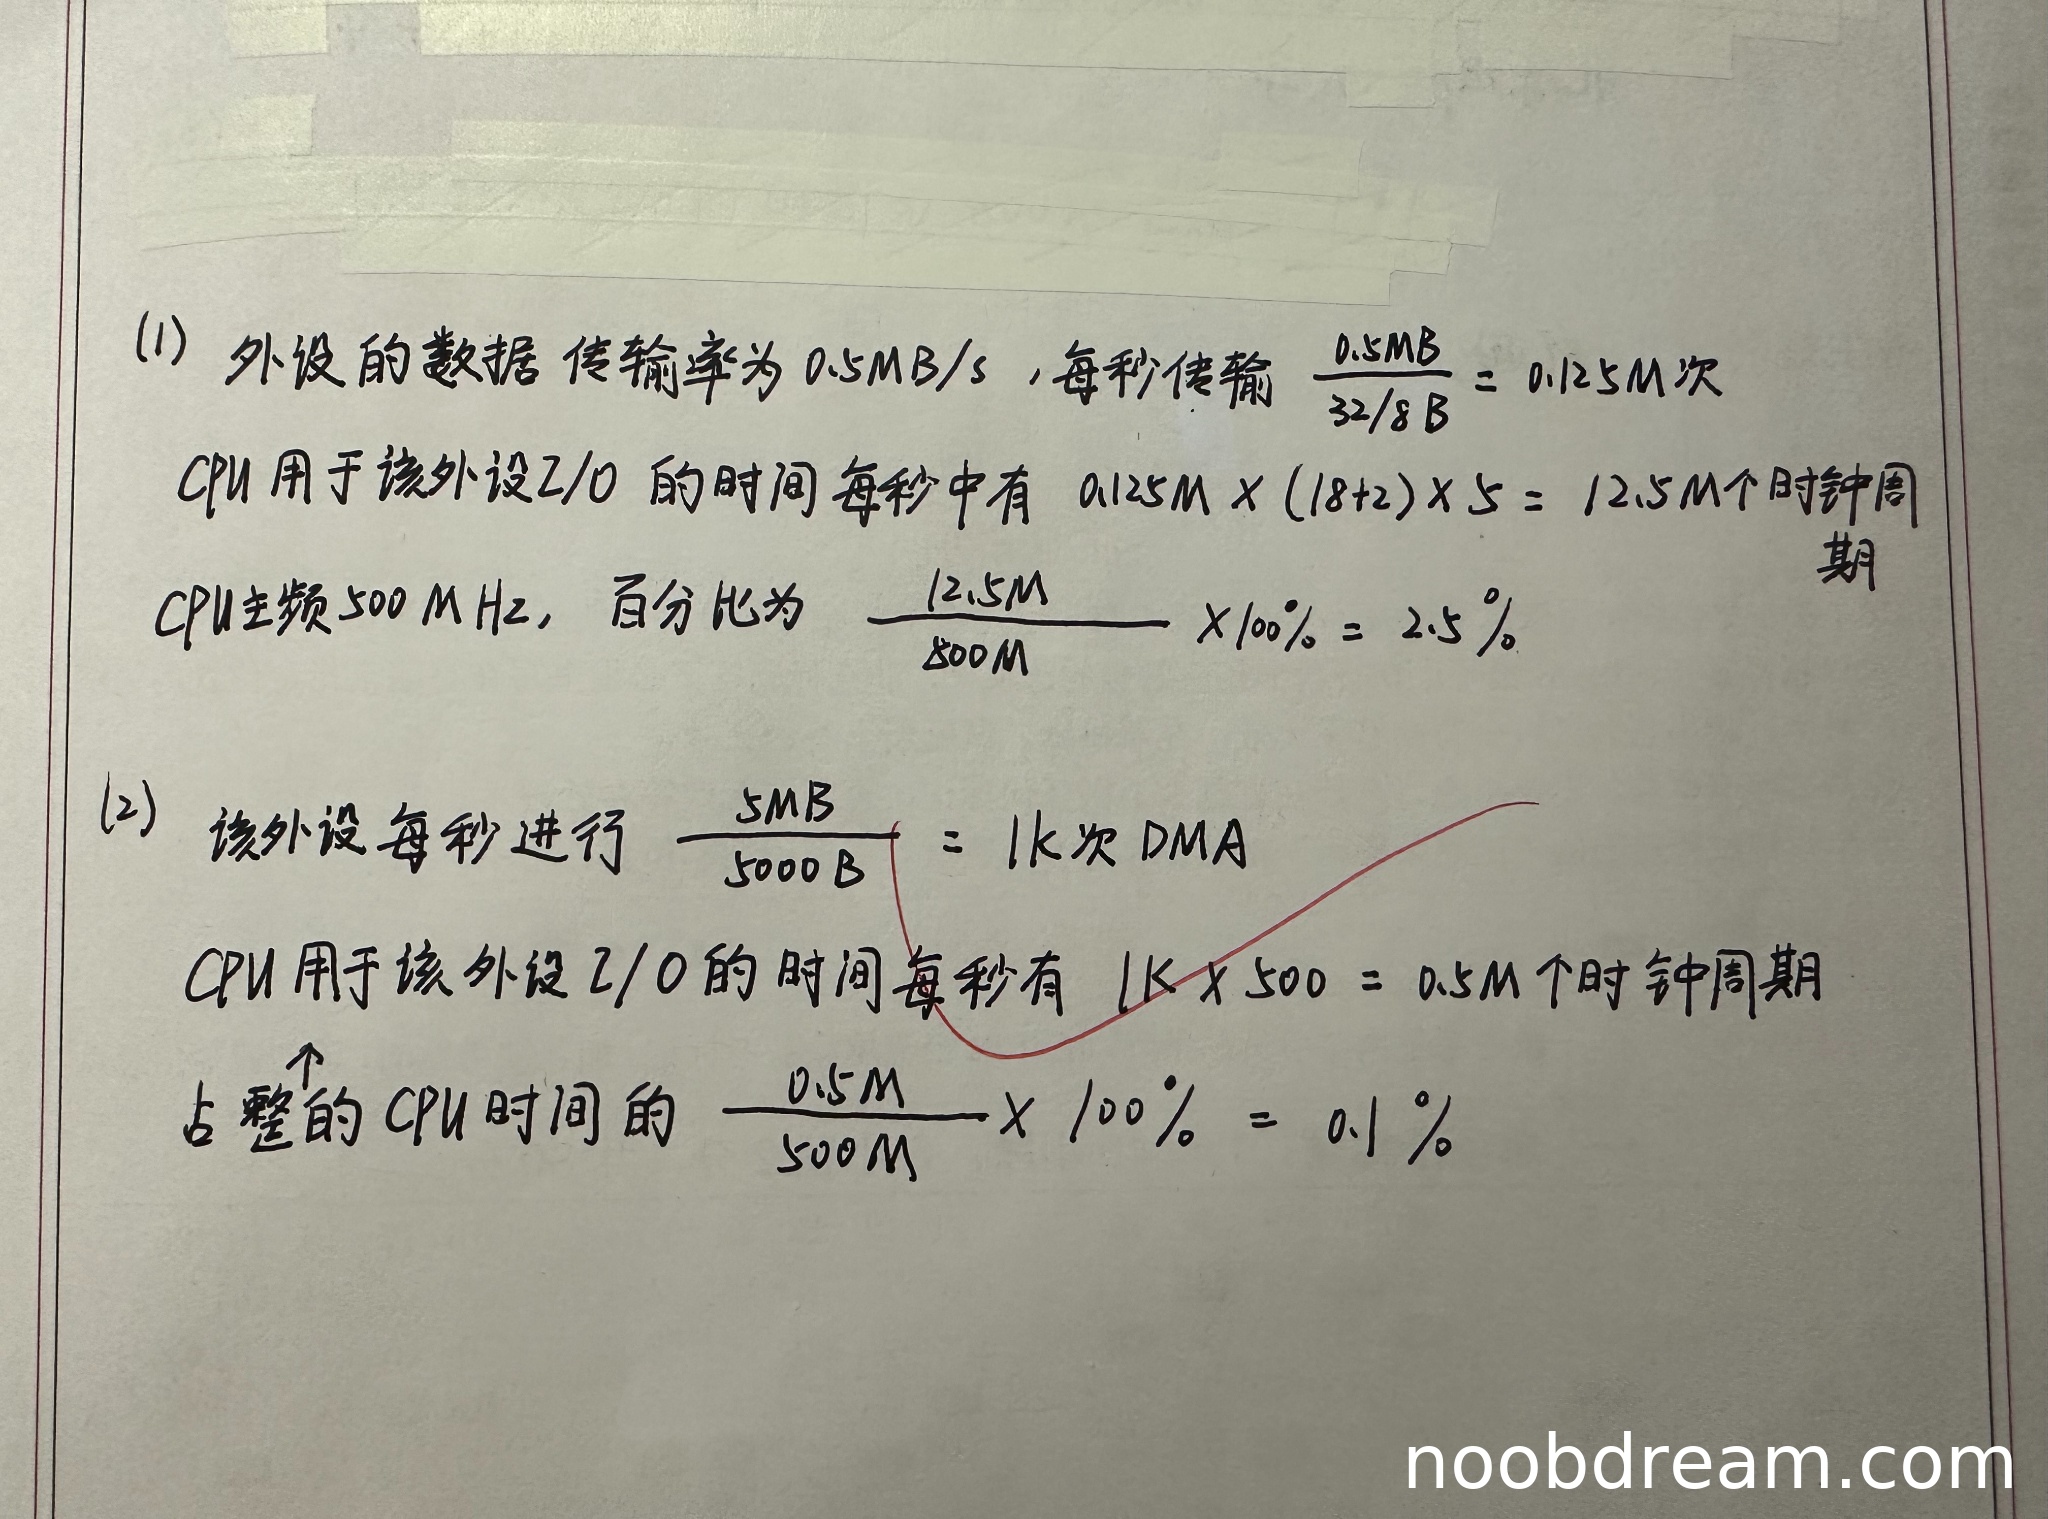 (1) 外设的数据传输率为 0.5MB/s ，每秒传输 0.5MB / 32/8 B = 0.125M次
CPU 用于该外设I/O 的时间每秒中有 0.125M × (18+2) × 5 = 12.5M个时钟周
期
CPU主频500MHz， 百分比为 12.5M / 500M ×100% = 2.5%
(2) 该外设每秒进行 5MB / 5000B = 1K次 DMA
CPU 用于该外设I/O的时间每秒有 1K × 500 = 0.5M个时钟周期
占整↑的 CPU 时间的 0.5M / 500M × 100% = 0.1%
noobdream.com